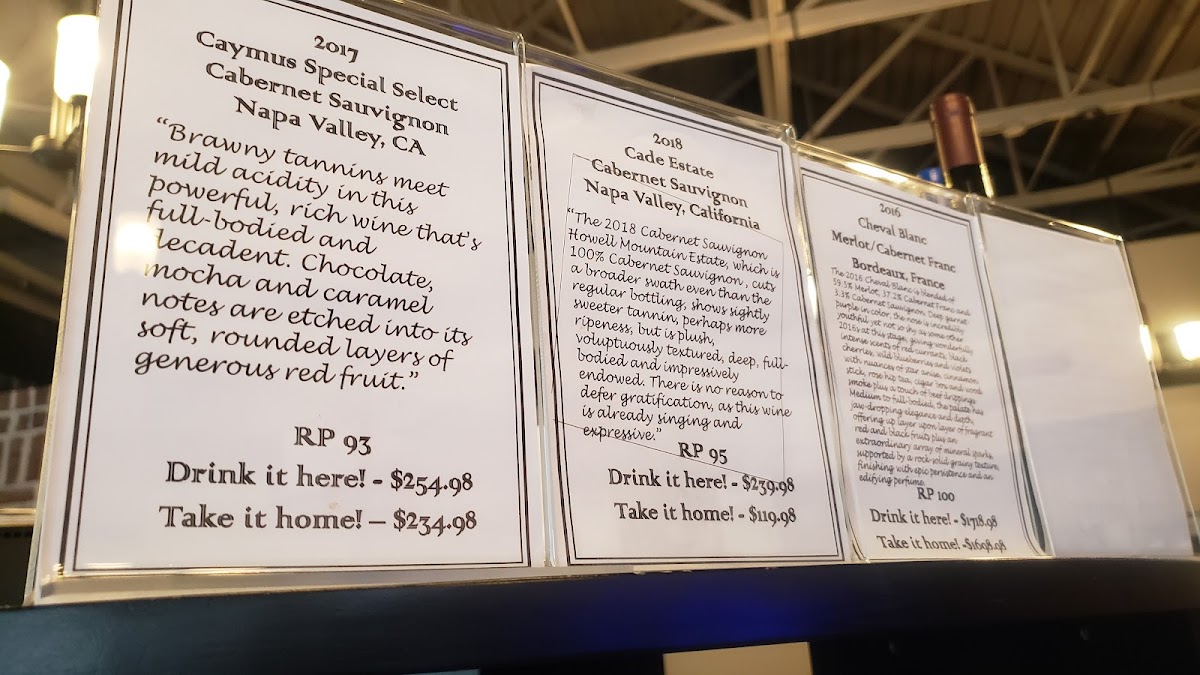 2017
Caymus Special Select
Cabernet Sauvignon
Napa Valley, CA
“Brawny tannins meet
mild acidity in this
powerful, rich wine that's
full-bodied and
decadent. Chocolate,
mocha and caramel
notes are etched into its
soft, rounded layers of
generous red fruit.”
RP 93
Drink it here! - $254.98
Take it home! – $234.98
2018
Cade Estate
Cabernet Sauvignon
Napa Valley, California
“The 2018 Cabernet Sauvignon
Howell Mountain Estate, which is
100% Cabernet Sauvignon , cuts
a broader swath even than the
regular bottling, shows sightly
sweeter tannin, perhaps more
ripeness, but is plush,
voluptuously textured, deep, full-
bodied and impressively
endowed. There is no reason to
defer gratification, as this wine
is already singing and
expressive.”
RP 95
Drink it here! - $239.98
Take it home! - $119.98
2016
Cheval Blanc
Merlot/Cabernet Franc
Bordeaux, France
The 2016 Cheval Blanc is blended of
59.5% Merlot, 37.2% Cabernet Franc and
3.3% Cabernet Sauvignon. Deep garnet-
purple in color, the nose is incredibly
youthful yet not so shy as some other
2016s at this stage, giving wonderfully
intense scents of red currants, black
cherries, wild blueberries and violets
with nuances of star anise, cinnamon
stick, rose hip tea, cigar box and wood
smoke plus a touch of beef drippings.
Medium to full-bodied, the palate has
jaw-dropping elegance and depth,
offering up layer upon layer of fragrant
red and black fruits plus an
extraordinary array of mineral sparks,
supported by a rock-solid grainy texture,
finishing with epic persistence and an
edifying perfume.
RP 100
Drink it here! - $1718.98
Take it home! -$1698.98